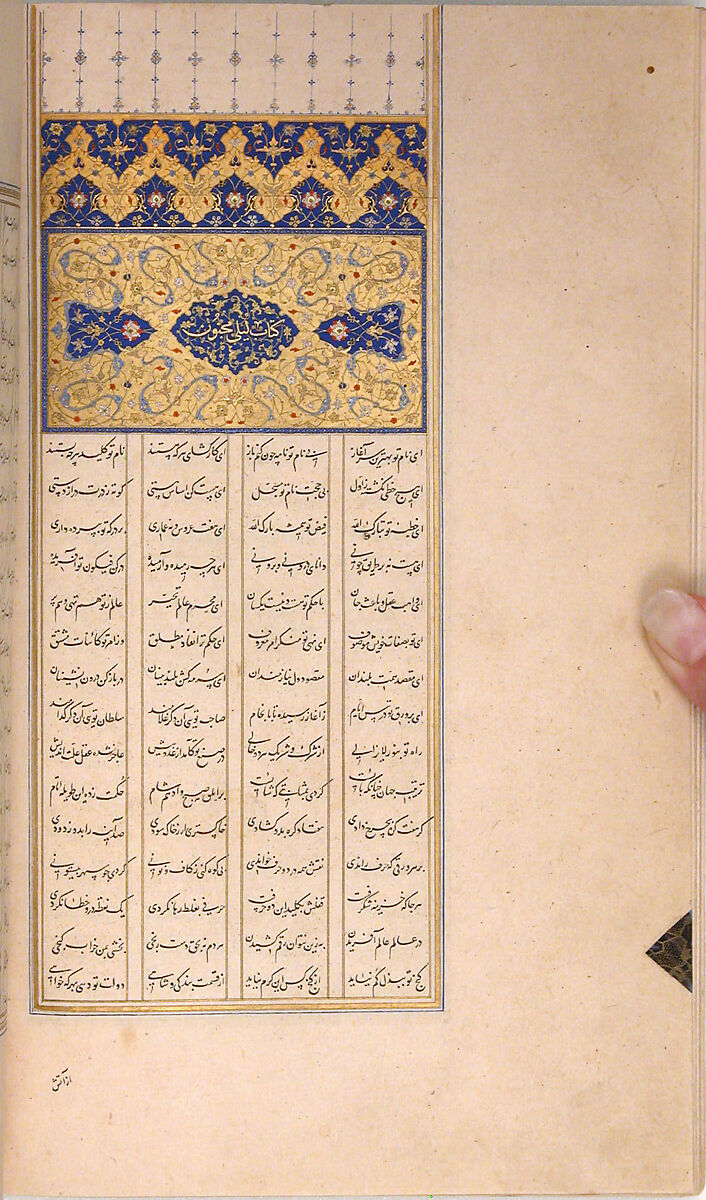 کتاب لیلی مجنون
ای نام تو بهترین سرآغاز بی نام تو نامه چون کنم باز ای کارگشای هر که هستند نام تو کلید هر چه بستند
ای هیچ خطی نگشته ز اول بی حجت نام تو مسجل ای هست کن اساس هستی کوته ز درت درازدستی
ای خطبه تو تبارک الله فیض تو همیشه بارک الله ای هفت عروس نه عماری بر درگه تو بپرده داری
ای هست نه بر طریق چونی دانای درونی و برونی ای هر چه رمیده و آرمیده در کن فیکون تو آفریده
ای واهب عقل و باعث جان با حکم تو هست و نیست یکسان ای محرم عالم تحیر عالم ز تو هم تهی و هم پر
ای تو بصفات خویش موصوف ای نهی تو منکر امر معروف ای حکم ترا نفاذ مطلق وز امر تو کائنات مشتق
ای مقصد همت بلندان مقصود دل نیازمندان ای سرمه کش بلند بینان در باز کن درون نشینان
ای بر ورق تو درس ایام ز آغاز رسیده تا بانجام صاحب تویی آن دگر غلامند سلطان تویی آن دگر کدامند
راه تو بنور لایزالی از شرک و شریک هر دو خالی در صنع تو کامد از عدد بیش عاجز شده عقل علت اندیش
ترتیب جهان چنانکه بایست کردی بمثابتی که شایست بر ابلق صبح و ادهم شام حکمت زده این طویله بام
گر هفت گره بچرخ دادی هفتاد گره بدو گشادی خاکستری ار ز خاک سودی صد آینه را بدو زدودی
بر هر ورقی که حرف راندی نقش همه در دو حرف خواندی بی کوه کنی ز کاف و نونی کردی چو سپهر بیستونی
هر جا که خزینه شگرفست قفلش بکلید این دو حرفست حرفی بغلط رها نکردی یک نقطه درو خطا نکردی
در عالم عالم آفریدن به زین نتوان رقم کشیدن هر دم نه بحق دست رنجی بخشی بمن خراب گنجی
گنج تو ببذل کم نیاید از گنج کس این کرم نیاید از قسمت بندگی و شاهی دولت تو دهی بهر که خواهی
از آتش